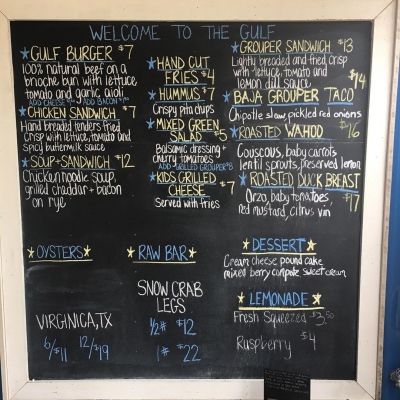 WELCOME TO THE GULF
GULF BURGER $7
100% natural beef on a
brioche bun with lettuce
tomato and garlic aioli
ADD CHEESE ADD BACON
CHICKEN SANDWICH $7
Hand breaded tenders fried
crisp with lettuce, tomato and
spicy buttermilk sauce
SOUP+SANDWICH $12
Chicken noodle soup,
grilled cheddar + bacon
on rye
HAND CUT
FRIES $4
HUMMUS $7
Crispy pita chips
MIXED GREEN
SALAD $5
Balsamic dressing +
cherry tomatoes
ADD GRILLED GROUPER $8
KIDS GRILLED
CHEESE $7
Served with fries
GROUPER SANDWICH $13
Lightly breaded and fried crisp
with lettuce, tomato and
lemon dill sauce
BAJA GROUPER TACO $14
Chipotle slaw, pickled red onions
ROASTED WAHOO $16
Couscous, baby carrots,
lentil sprouts, preserved lemon
ROASTED DUCK BREAST $17
Orzo, baby tomatoes,
red mustard, citrus vin
OYSTERS
VIRGINICA, TX
6/$11 12/$19
RAW BAR
SNOW CRAB
LEGS
1/2# $12
1# $22
DESSERT
Cream cheese pound cake
mixed berry compote sweet cream
LEMONADE
Fresh Squeezed $3.50
Raspberry $4